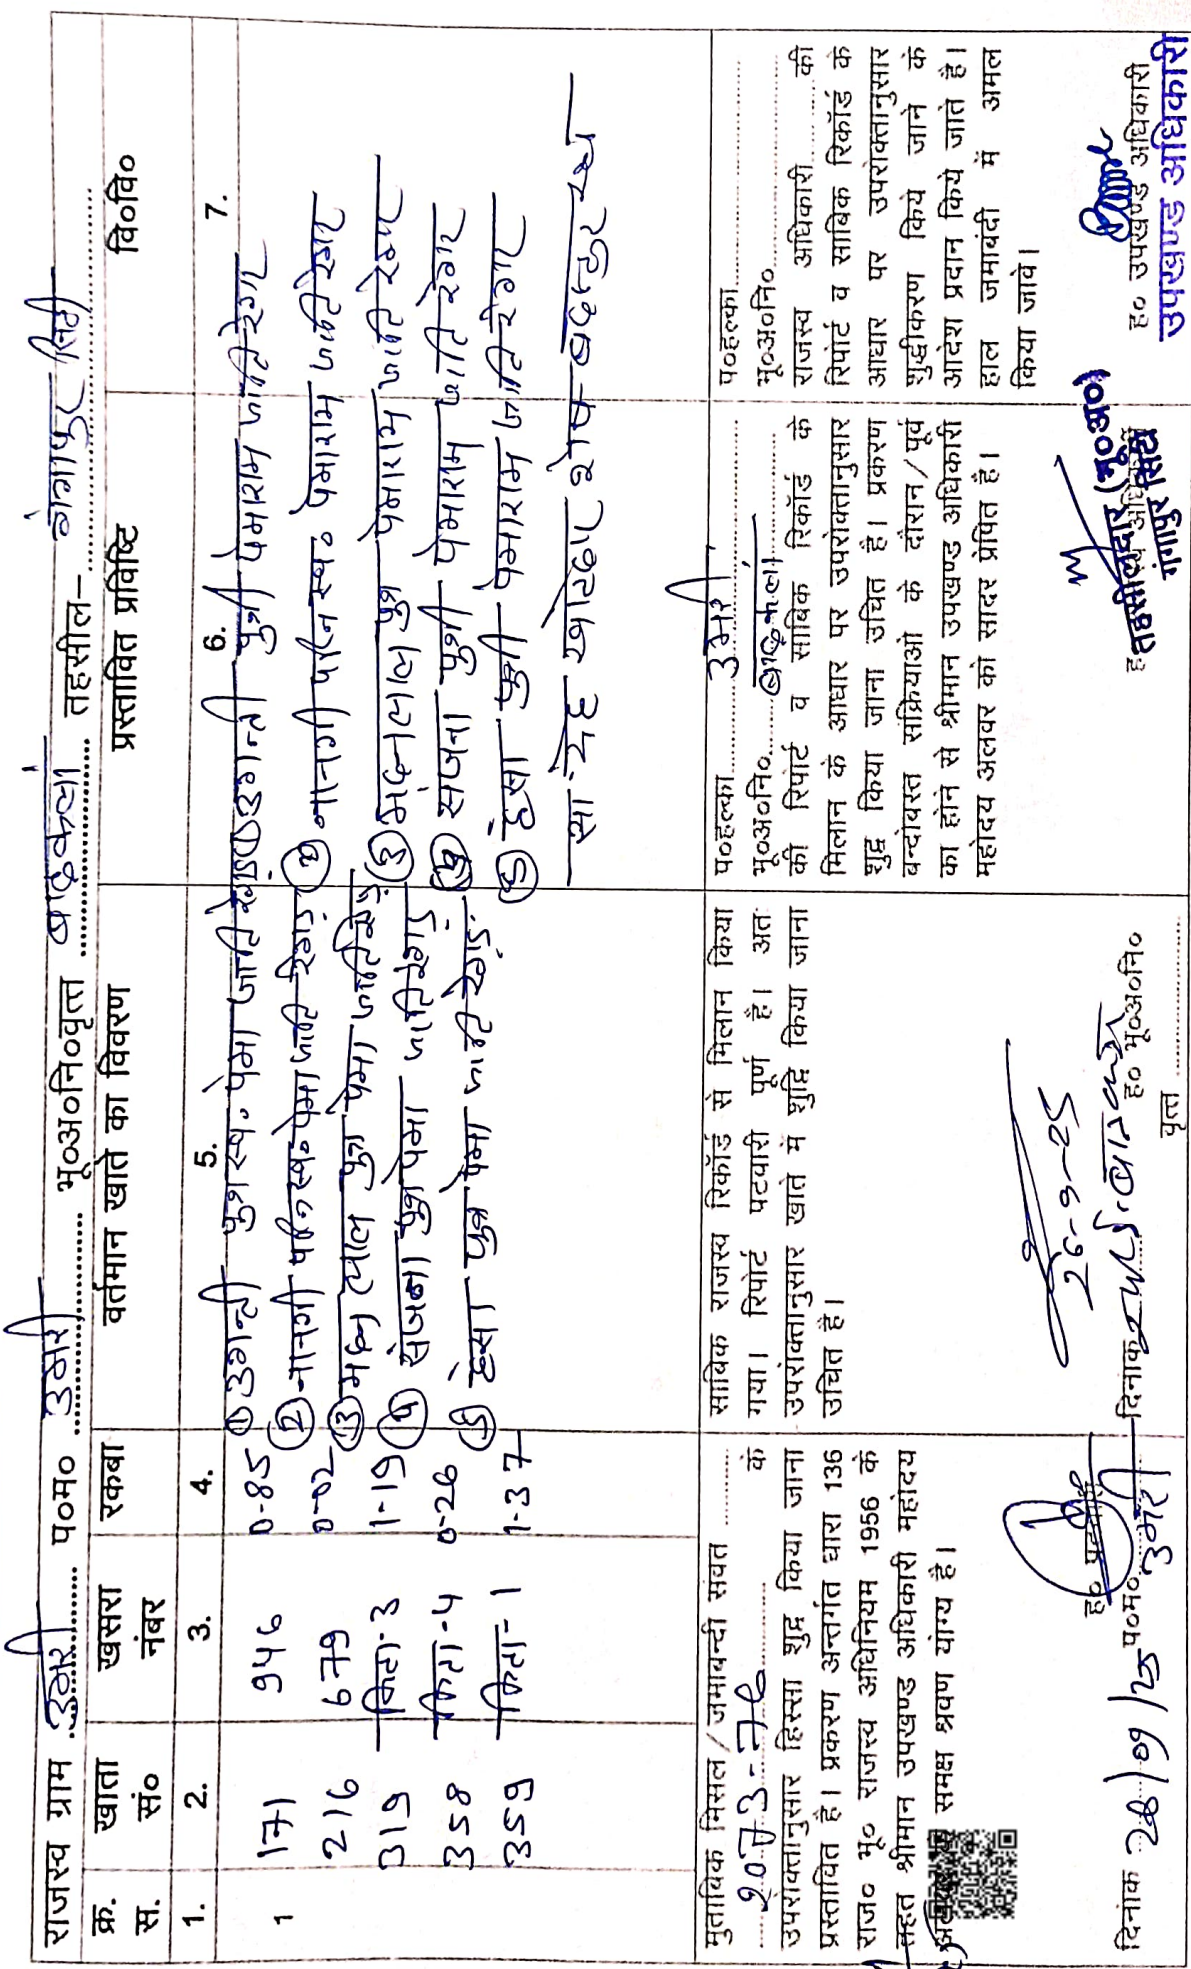 राजस्व ग्राम उमरी प०म० उमरी भू०अ०नि०वृत्त बाढ़कलां तहसील- गंगापुर सिटी
क्र. स. खाता सं० खसरा नंबर रकबा वर्तमान खाते का विवरण प्रस्तावित प्रविष्टि वि०वि०
1. 2. 3. 4. 5. 6. 7.
1 171 946 0-85 ① पुत्र स्व. पेमा जाति पुत्री पेमाराम जाति रेगर
216 679 0-02 ② नानगी पत्नि स्व. पेमा जाति रेगर ② नानगी पत्नि स्व० पेमाराम जाति रेगर
319 किता-3 1-19 ③ लाल पुत्र पेमा जाति ③ मदनलाल पुत्र पेमाराम जाति रेगर
358 किता-4 0-26 ④ संजना पुत्र पेमा जाति रेगर ④ संजना पुत्री पेमाराम जाति रेगर
359 किता-1 1-37 ⑤ हंसा पुत्र पेमा जाति रेगर ⑤ हंसा पुत्री पेमाराम जाति रेगर
सा. देह खातेदार शेष-बदस्तूर
मुताबिक मिसल/जमाबन्दी संवत
2073-76 के
उपरोक्तानुसार हिस्सा शुद्ध किया जाना
प्रस्तावित है। प्रकरण अन्तर्गत धारा 136
राज० भू० राजस्व अधिनियम 1956 के
तहत श्रीमान उपखण्ड अधिकारी महोदय
समक्ष श्रवण योग्य है।
ह० पटवारी
दिनांक 28/09/25 प०म० उमरी
साबिक राजस्व रिकॉर्ड से मिलान किया
गया। रिपोर्ट पटवारी पूर्ण है। अतः
उपरोक्तानुसार खाते में शुद्धि किया जाना
उचित है।
26-9-25
दिनांक ह० भू०अ०नि०
वृत्त
प०हल्का उमरी
भू०अ०नि० बाढ़कलां
की रिपोर्ट व साबिक रिकॉर्ड के
मिलान के आधार पर उपरोक्तानुसार
शुद्ध किया जाना उचित है। प्रकरण
बन्दोबस्त संक्रियाओं के दौरान/पूर्व
का होने से श्रीमान उपखण्ड अधिकारी
महोदय अलवर को सादर प्रेषित है।
तहसीलदार (भू०अ०)
गंगापुर सिटी
प०हल्का
भू०अ०नि०
राजस्व अधिकारी की
रिपोर्ट व साबिक रिकॉर्ड के
आधार पर उपरोक्तानुसार
शुद्धीकरण किये जाने के
आदेश प्रदान किये जाते है।
हाल जमाबंदी में अमल
किया जावे।
ह० उपखण्ड अधिकारी
उपखण्ड अधिकारी